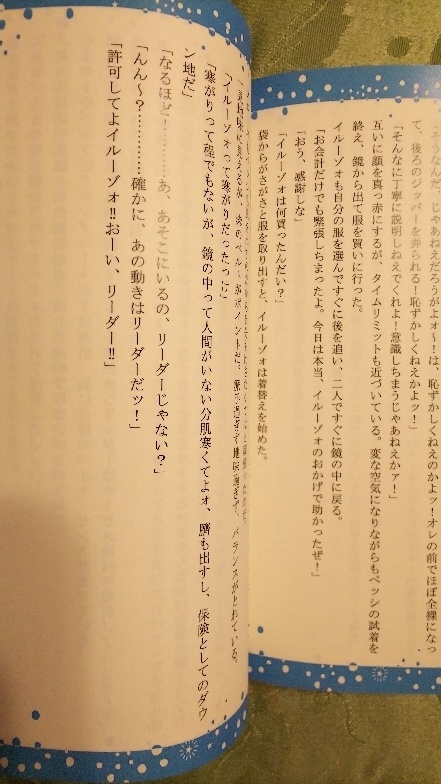 そうなんだ、じゃあねえだろうがよォ～！は、恥ずかしくねえのかよッ！オレの前でほぼ全裸になっ
て、後ろのジッパーを弄られる！恥ずかしくねえかよッ！」
「そんなに丁寧に説明しねえでくれよ！意識しちまうじゃあねえかァ！」
互いに顔を真っ赤にするが、タイムリミットも近づいている。変な空気になりながらもペッシの試着を
終え、鏡から出て服を買いに行った。
イルーゾォも自分の服を選んですぐに後を追い、二人ですぐに鏡の中に戻る。
「お会計だけでも緊張しちまったよ。今日は本当、イルーゾォのおかげで助かったぜ！」
「おう、感謝しな」
「イルーゾォは何買ったんだい？」
袋からがさがさと服を取り出すと、イルーゾォは着替えを始めた。
バランスがとれている。
「イルーゾォって寒がりだったっけ？」
「寒がりって程でもないが、鏡の中って人間がいない分肌寒くてよォ、臍も出すし、保険としてのダウ
ン地だ」
「なるほど！………あ、あそこにいるの、リーダーじゃない？」
「んん～？…………確かに、あの動きはリーダーだッ！」
「許可してよイルーゾォ!!おーい、リーダー!!」